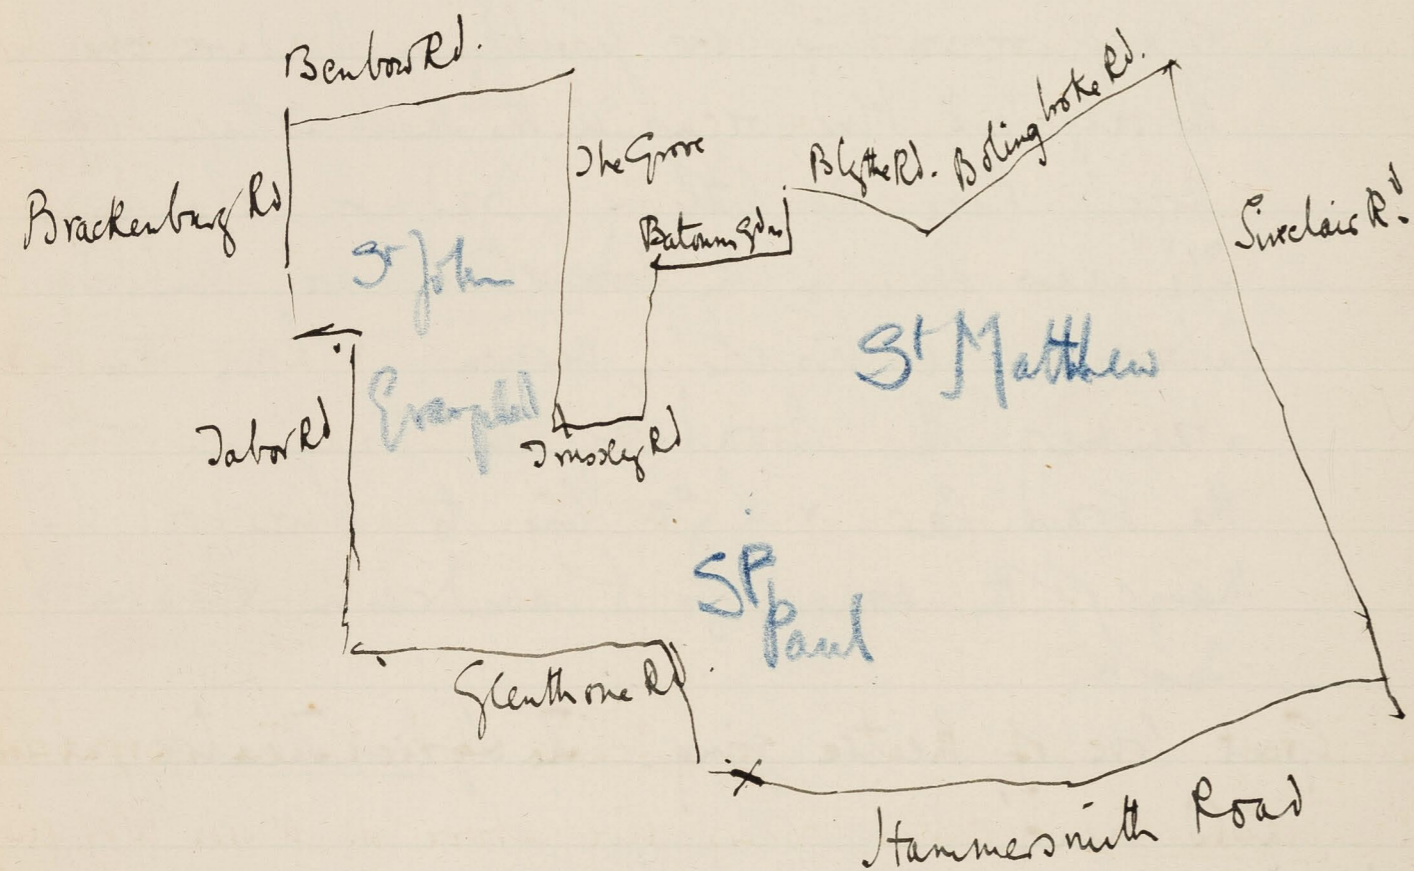 Benbow Rd.
The Grove
Blythe Rd. Bolingbroke Rd.
Brackenbury Rd
Batoum Gdns
Sinclair Rd.
St John
Evangelist
St Matthew
Tabor Rd
Trussley Rd
St Paul
Glenthorne Rd
Hammersmith Road